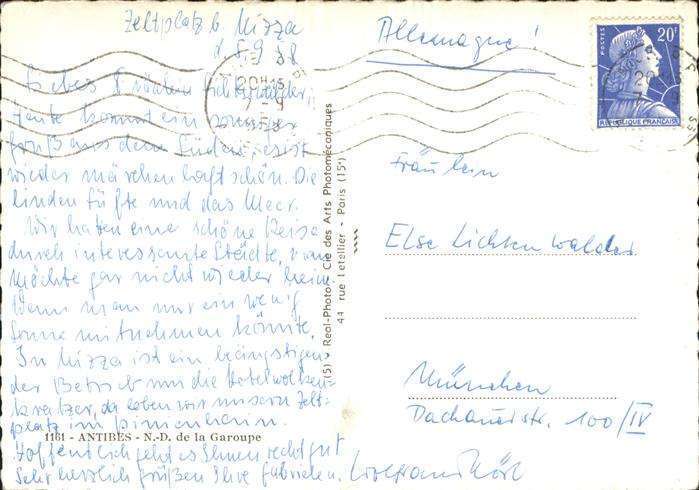 Zeltplatz b. Nizza
d. 5.9.58
Liebes Fräulein Lichtenwalder,
heute kommt ein sonniger
Gruß aus dem Süden, es ist
wieder märchenhaft schön. Die
linden Lüfte und das Meer.
Wir haben eine schöne Reise
durch interessante Städte, man
möchte gar nicht wieder heim.
Wenn man nur ein wenig
Sonne mitnehmen könnte.
In Nizza ist ein beängstigen-
der Betrieb um die Hotelwolken-
kratzer, da loben wir unsern Zelt-
platz im Pinienhain.
1161 - ANTIBES - N.-D. de la Garoupe
Hoffentlich geht es Ihnen recht gut
Sehr herzlich grüßen Ihre Gabriele u. Wolfram
(S) Real-Photo Cie des Arts Photomécaniques
44 rue Letellier - Paris (15e)
Allemagne!
POSTES
20F
REPUBLIQUE FRANÇAISE
Fräulein
Else Lichtenwalder
München
Dachauerstr. 100/IV